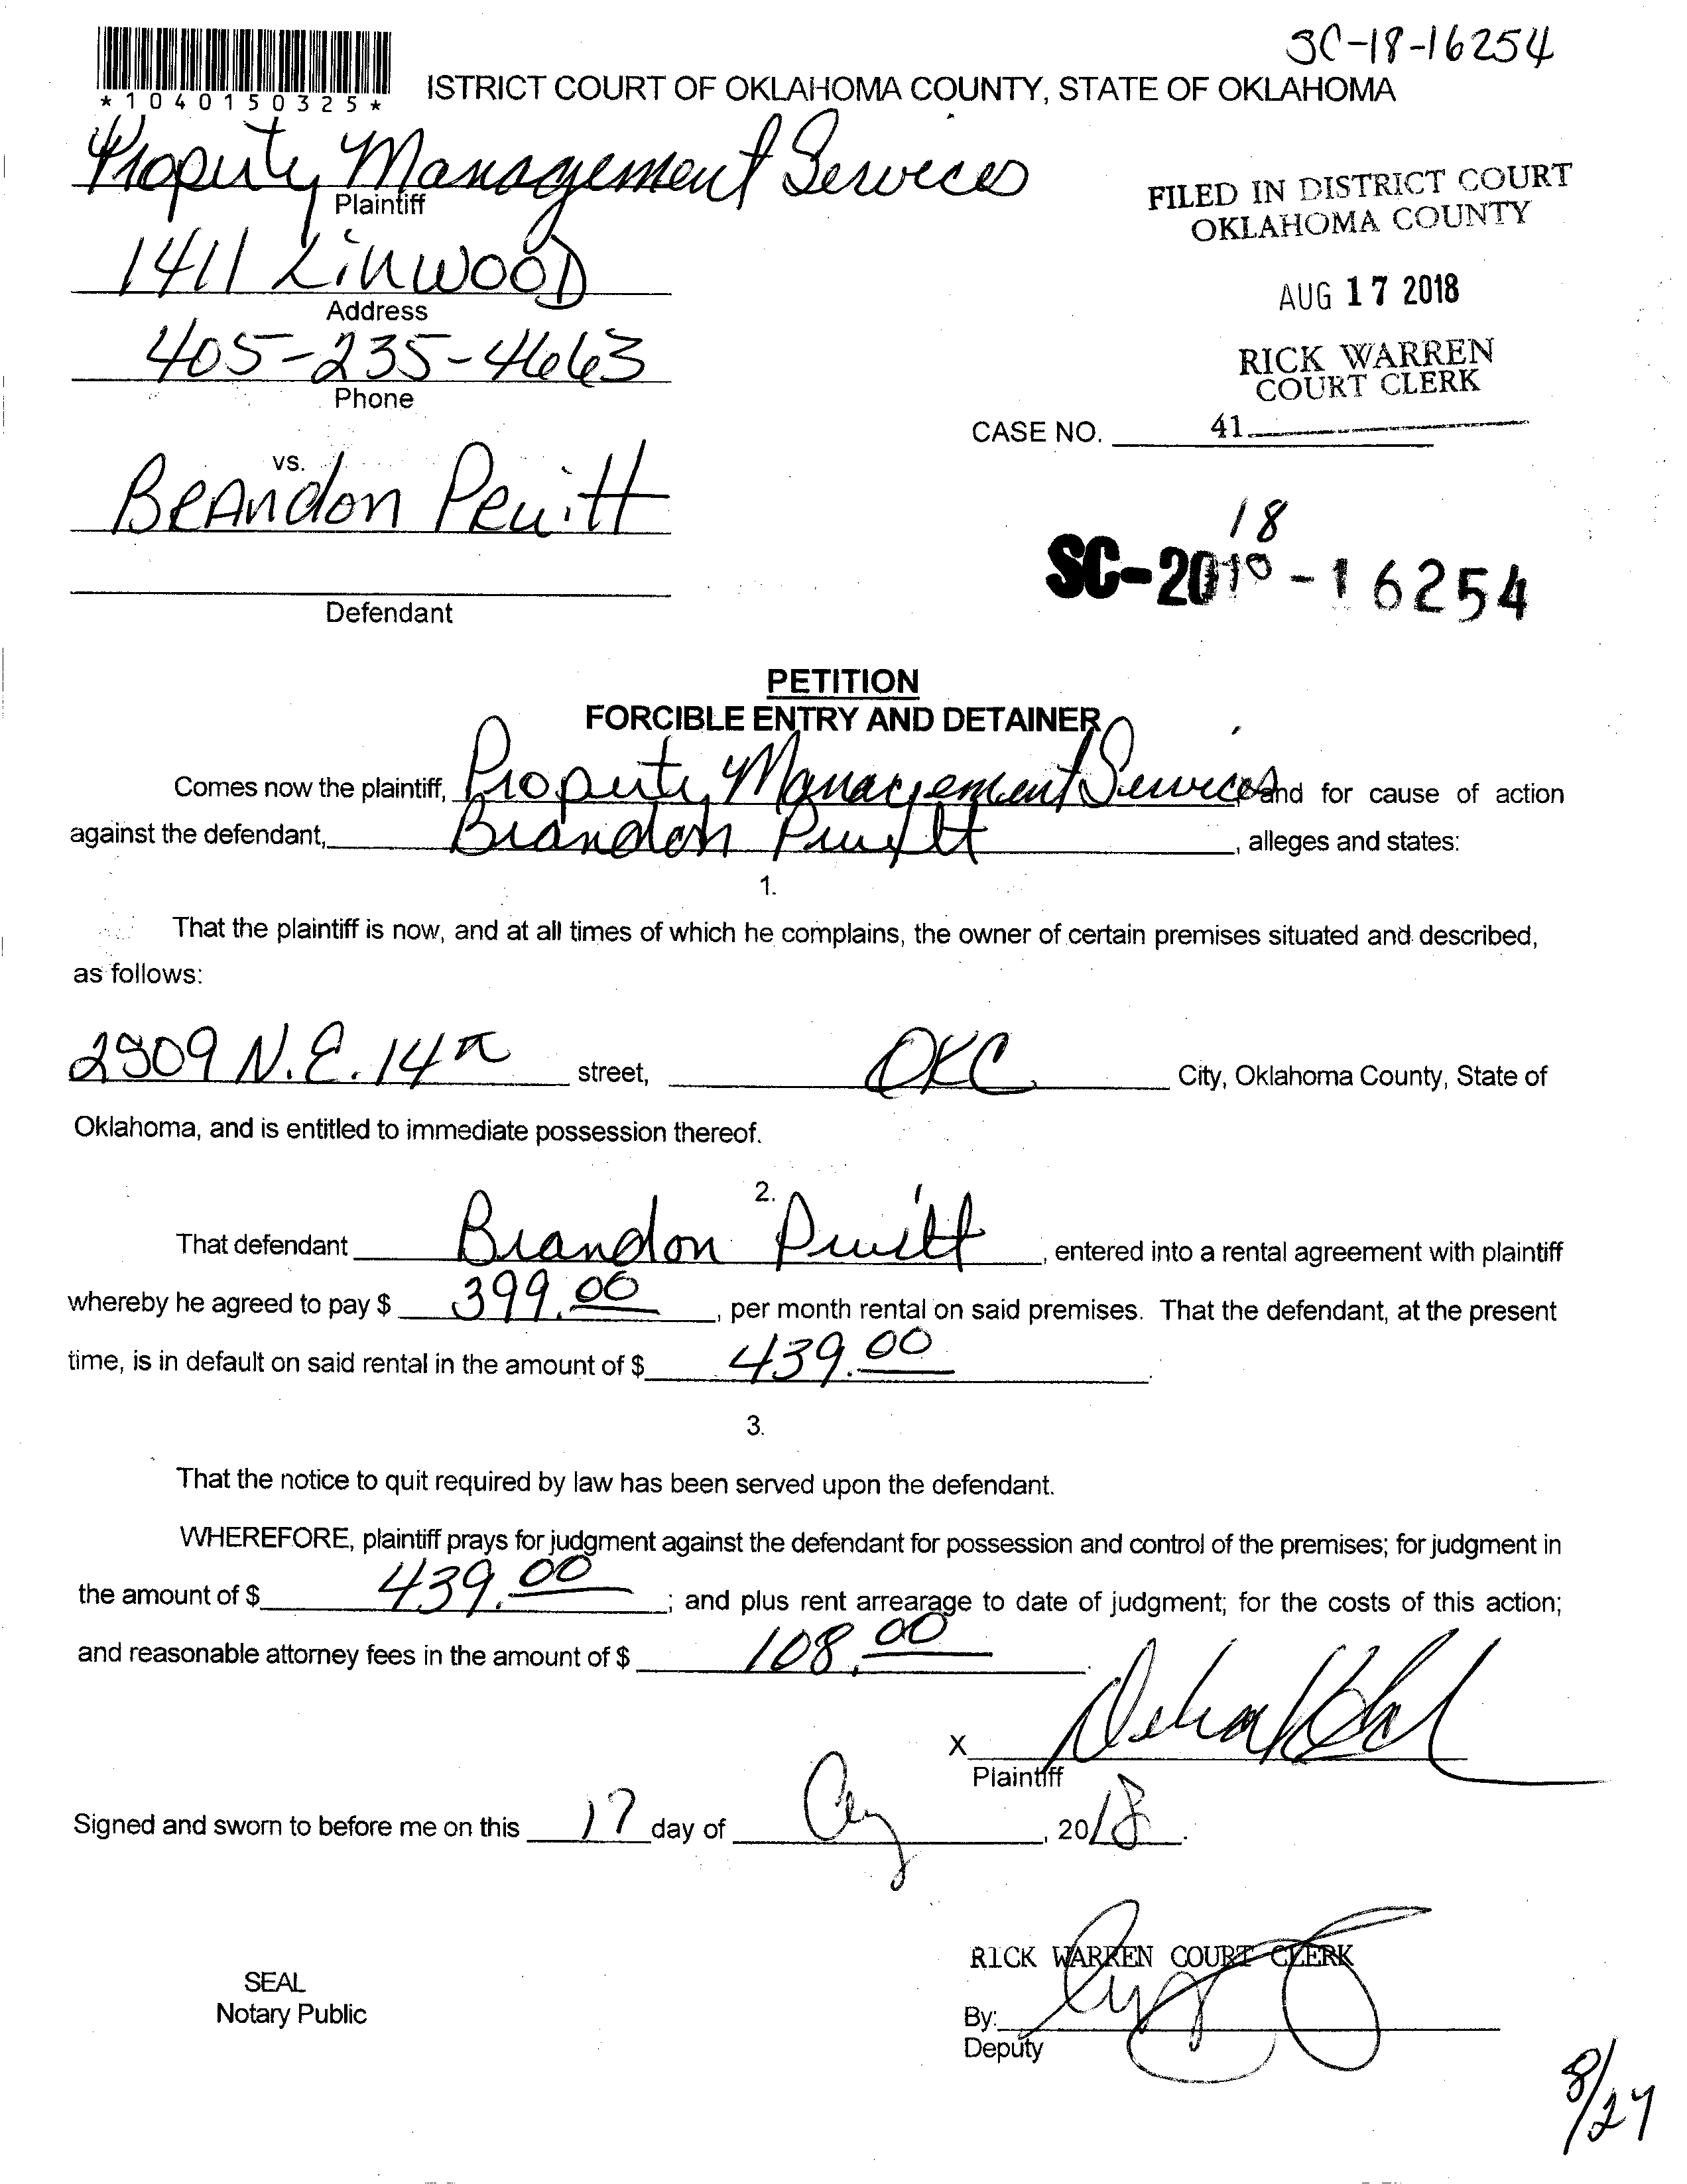 SC-18-16254
*1040150325*
ISTRICT COURT OF OKLAHOMA COUNTY, STATE OF OKLAHOMA
Property Management Services
Plaintiff
FILED IN DISTRICT COURT
OKLAHOMA COUNTY
1411 Linwood
Address
AUG 17 2018
405-235-4663
Phone
RICK WARREN
COURT CLERK
CASE NO. 41
vs.
Brandon Pruitt
18
SC-2010-16254
Defendant
PETITION
FORCIBLE ENTRY AND DETAINER
Comes now the plaintiff, Property Management Services, and for cause of action
against the defendant, Brandon Pruitt, alleges and states:
1.
That the plaintiff is now, and at all times of which he complains, the owner of certain premises situated and described,
as follows:
2909 N.E. 14th street, OKC City, Oklahoma County, State of
Oklahoma, and is entitled to immediate possession thereof.
2.
That defendant Brandon Pruitt, entered into a rental agreement with plaintiff
whereby he agreed to pay $ 399.00, per month rental on said premises. That the defendant, at the present
time, is in default on said rental in the amount of $ 439.00.
3.
That the notice to quit required by law has been served upon the defendant.
WHEREFORE, plaintiff prays for judgment against the defendant for possession and control of the premises; for judgment in
the amount of $ 439.00; and plus rent arrearage to date of judgment; for the costs of this action;
and reasonable attorney fees in the amount of $ 108.00.
X
Plaintiff
Signed and sworn to before me on this 17 day of Aug, 2018.
RICK WARREN COURT CLERK
SEAL
Notary Public
By:
Deputy
8/27